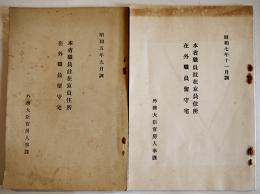 昭和七年十一月調
本省職員並在京員住所
在外職員留守宅
外務大臣官房人事課
昭和五年九月調
本省職員並在京員住所
在外職員留守宅
外務大臣官房人事課